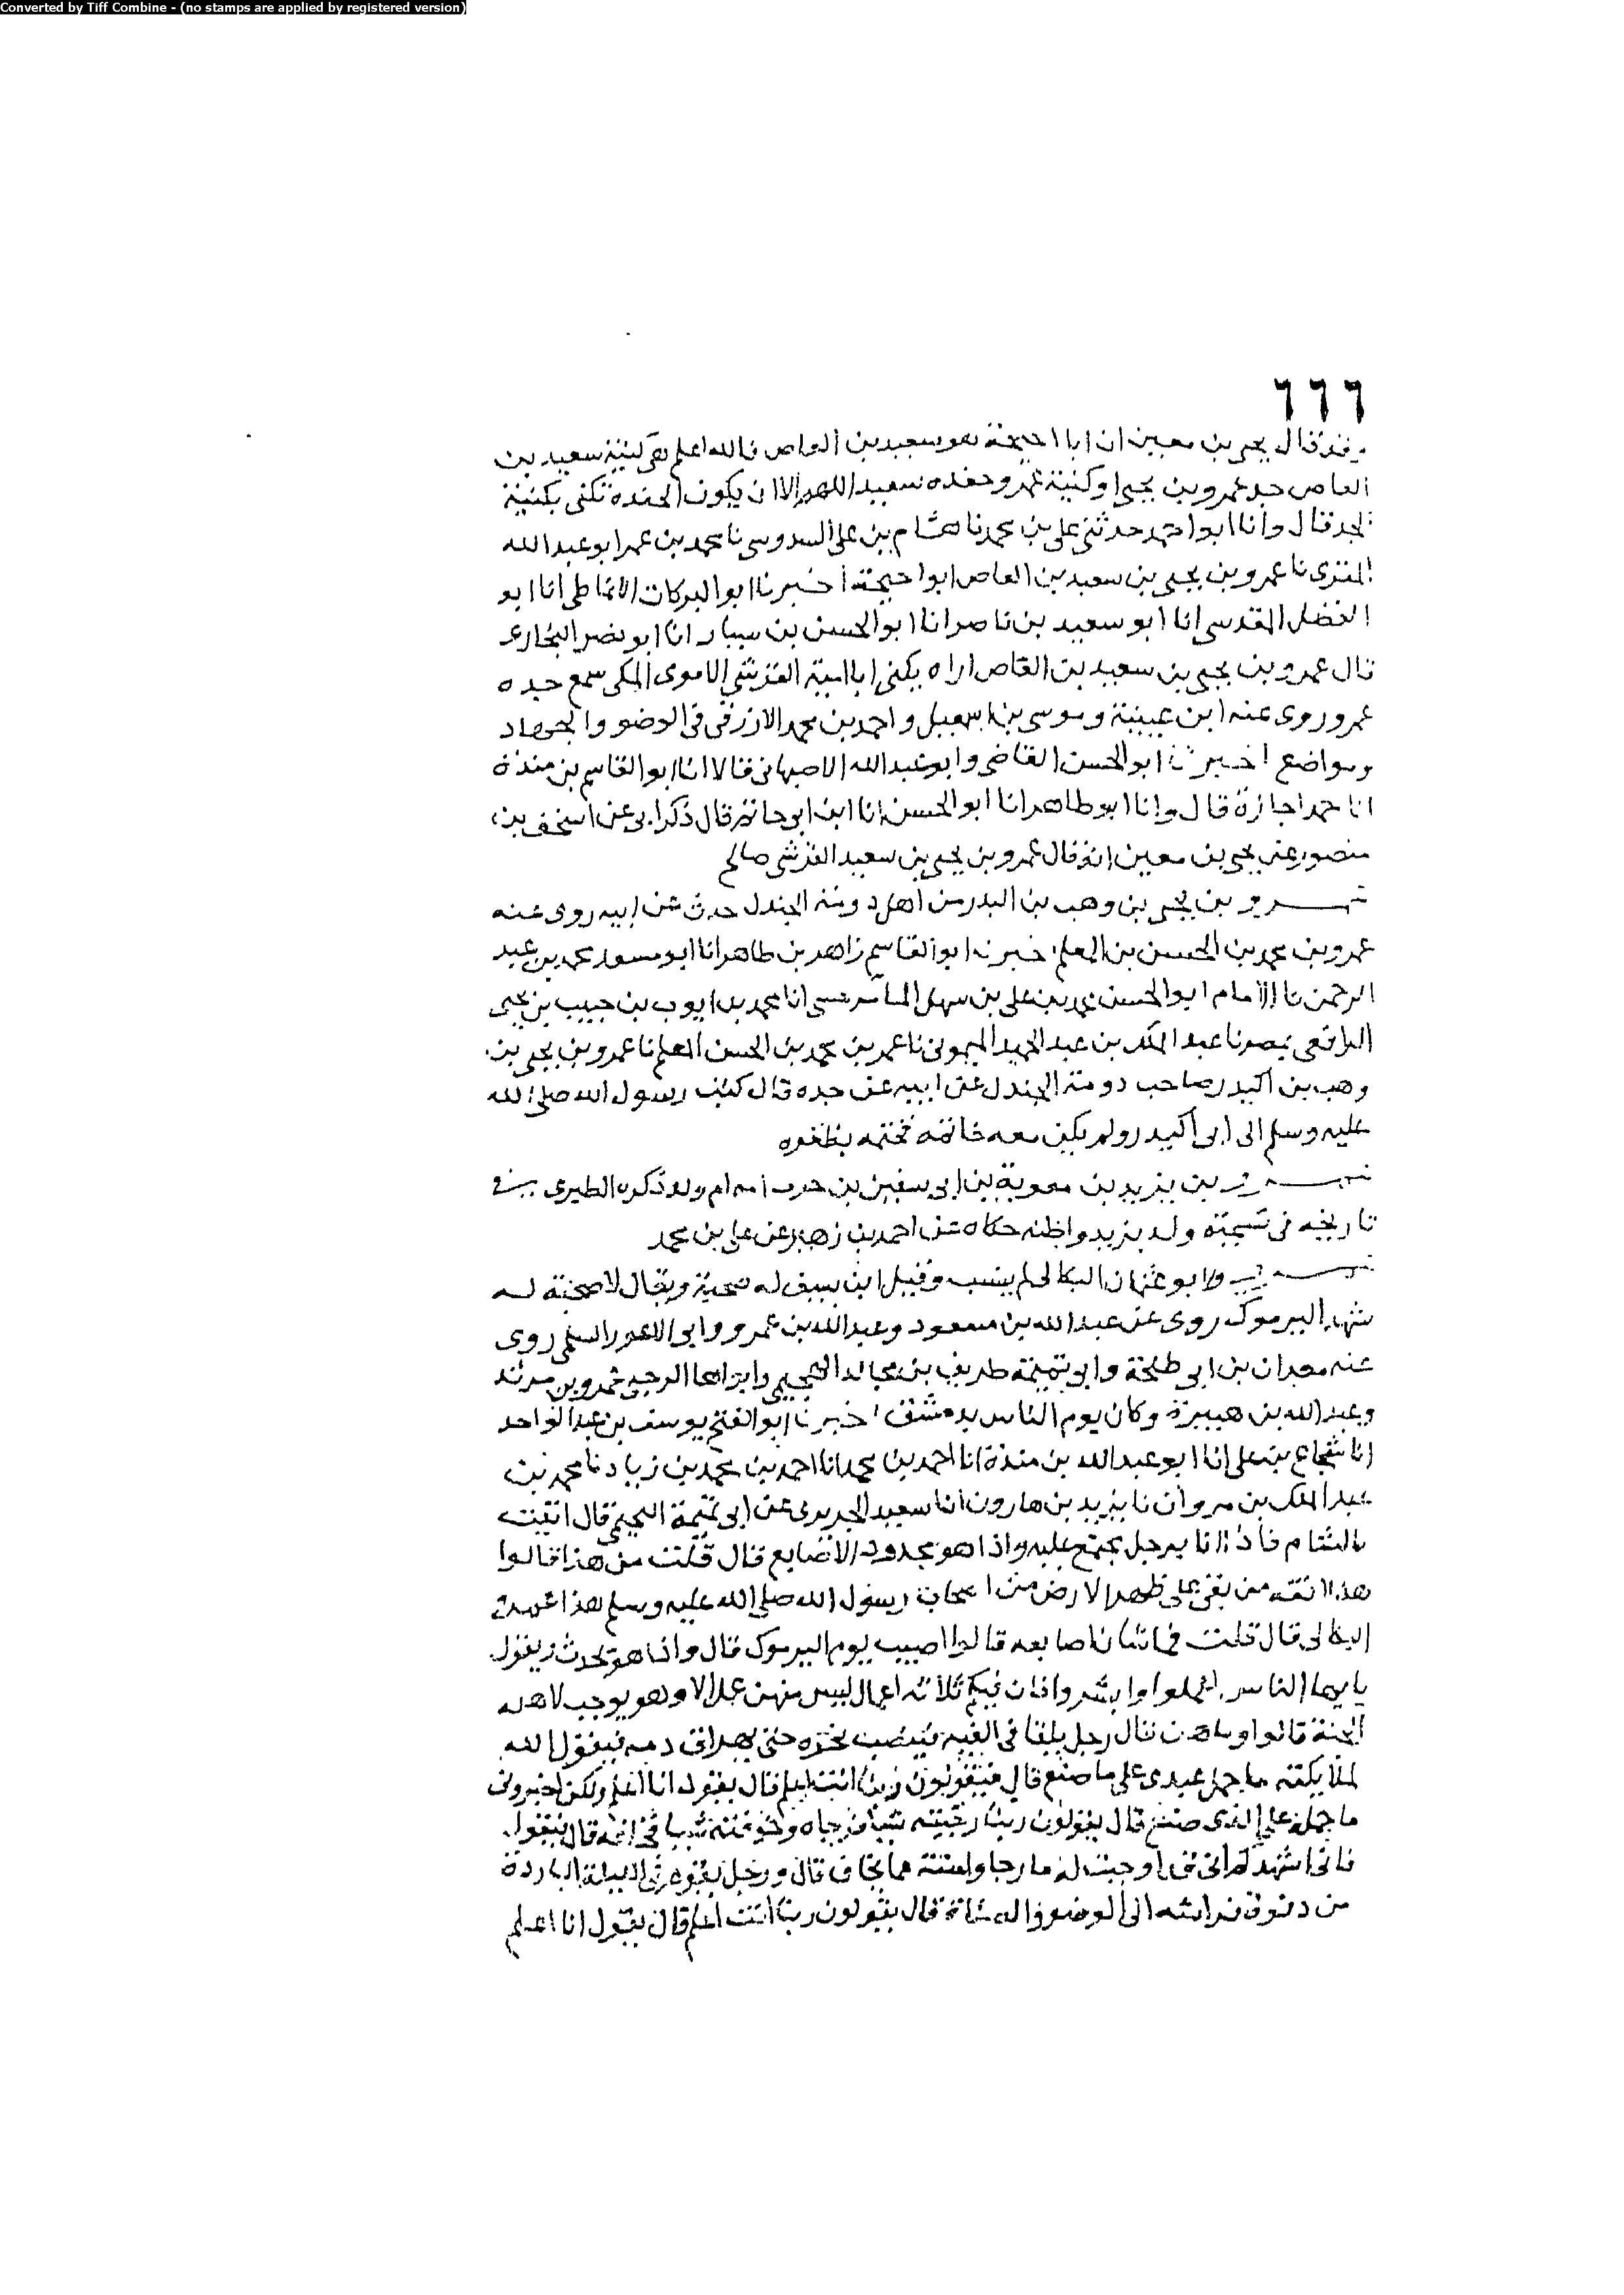 Converted by Tiff Combine - (no stamps are applied by registered version)
٦٦٦
وقد قال يحيى بن معين ان ابا احيحة هو سعيد بن العاص فالله اعلم هي كنية سعيد بن
العاص جد عمرو بن يحيى او كنية عمرو حفده سعيد اللهم الا ان يكون الحفدة تكنى بكنية
الجد قال وانا ابو احمد حدثني علي بن محمد نا هشام بن علي السدوسي نا محمد بن عمر ابو عبد الله
نا عمرو بن يحيى بن سعيد بن العاص ابو احيحة اخبرنا ابو البركات الانماطي انا ابو
الفضل المقدسي انا ابو سعيد بن ناصر انا ابو الحسن بن سيبار انا ابو نصر البخاري
قال عمرو بن يحيى بن سعيد بن العاص اراه يكنى ابا امية القرشي الاموي المكي سمع جده
عمرو روى عنه ابن عيينة وموسى بن اسمعيل واحمد بن محمد الازرقي في الوضو والجهاد
ومواضع اخبرنا ابو الحسن القاضي وابو عبد الله الاصبهاني قالا انا ابو القاسم بن مندة
انا حمد اجازة قال وانا ابو طاهر انا ابو الحسن انا ابن ابي حاتم قال ذكر ابي عن اسحق بن
منصور عن يحيى بن معين انه قال عمرو بن يحيى بن سعيد القرشي صالح
عمرو بن يحيى بن وهب بن اكيدر من اهل دومة الجندل حدث عن ابيه روى عنه
عمرو بن محمد بن الحسن بن المعلم اخبرنا ابو القاسم زاهر بن طاهر انا ابو مسعود محمد بن عبد
الرحمن نا الامام ابو الحسن محمد بن علي بن سهل الماسرجسي انا محمد بن ايوب بن حبيب بن يحيى
الرقي بمصر نا عبد الملك بن عبد الحميد الميموني نا عمر بن محمد بن الحسن المعلم نا عمرو بن يحيى بن
وهب بن اكيدر صاحب دومة الجندل عن ابيه عن جده قال كتب رسول الله صلى الله
عليه وسلم الى ابي اكيدر ولم يكن معه خاتمه فختمه بظفره
عمر بن يزيد بن معوية بن ابي سفين بن حرب امه ام ولد ذكره الطبري في
تاريخه في تسمية ولد يزيد واظنه حكاه عن احمد بن زهير عن علي بن محمد
عمرو ابو عثمان البكالي لم ينسب وقيل ابن سيف له صحبة ويقال لا صحبة له
شهد اليرموك روى عن عبد الله بن مسعود وعبد الله بن عمرو وابي الاعور السلمي روى
عنه معدان بن ابي طلحة وابو تميمة طريف بن مجالد الهجيمي وابو اسما الرحبي عمرو بن مرثد
وعبد الله بن هبيرة وكان يوم الناس بدمشق اخبرنا ابو الفتح يوسف بن عبد الواحد
انا شجاع بن علي انا ابو عبد الله بن مندة انا احمد بن محمد انا احمد بن محمد بن زياد نا محمد بن
عبد الملك بن مروان نا يزيد بن هارون انا سعيد الجريري عن ابي تميمة الهجيمي قال اتيت
الشام فاذا انا برجل مجتمع عليه واذا هو مجدود الاصابع قال قلت من هذا قالوا
هذا افقه من بقي على ظهر الارض من اصحاب رسول الله صلى الله عليه وسلم هذا عمرو
البكالي قال قلت فما شان اصابعه قالوا اصيب يوم اليرموك قال واذا هو يحدث ويقول
يا ايها الناس اعملوا وابشروا فان فيكم ثلاثة اعمال ليس منهن عمل الا وهو يوجب لاهله
الجنة قالوا وما هن قال رجل يلقا في الفيه فينصب نحره حتى يهراق دمه فيقول الله
لملايكته ما حمل عبدي على ما صنع قال فيقولون ربنا انت اعلم قال يقول انا اعلم ولكن اخبروني
ما حمله على الذي صنع قال يقولون ربنا رجيته شيا فرجاه وخوفته شيا فخافه قال فيقول
فاني اشهدكم اني قد اوجبت له ما رجا وامنته مما يخاف قال ورجل يقوم في الليلة الباردة
من دفؤ فراشه الى الوضوء والصلاة قال يقولون ربنا انت اعلم قال يقول انا اعلم